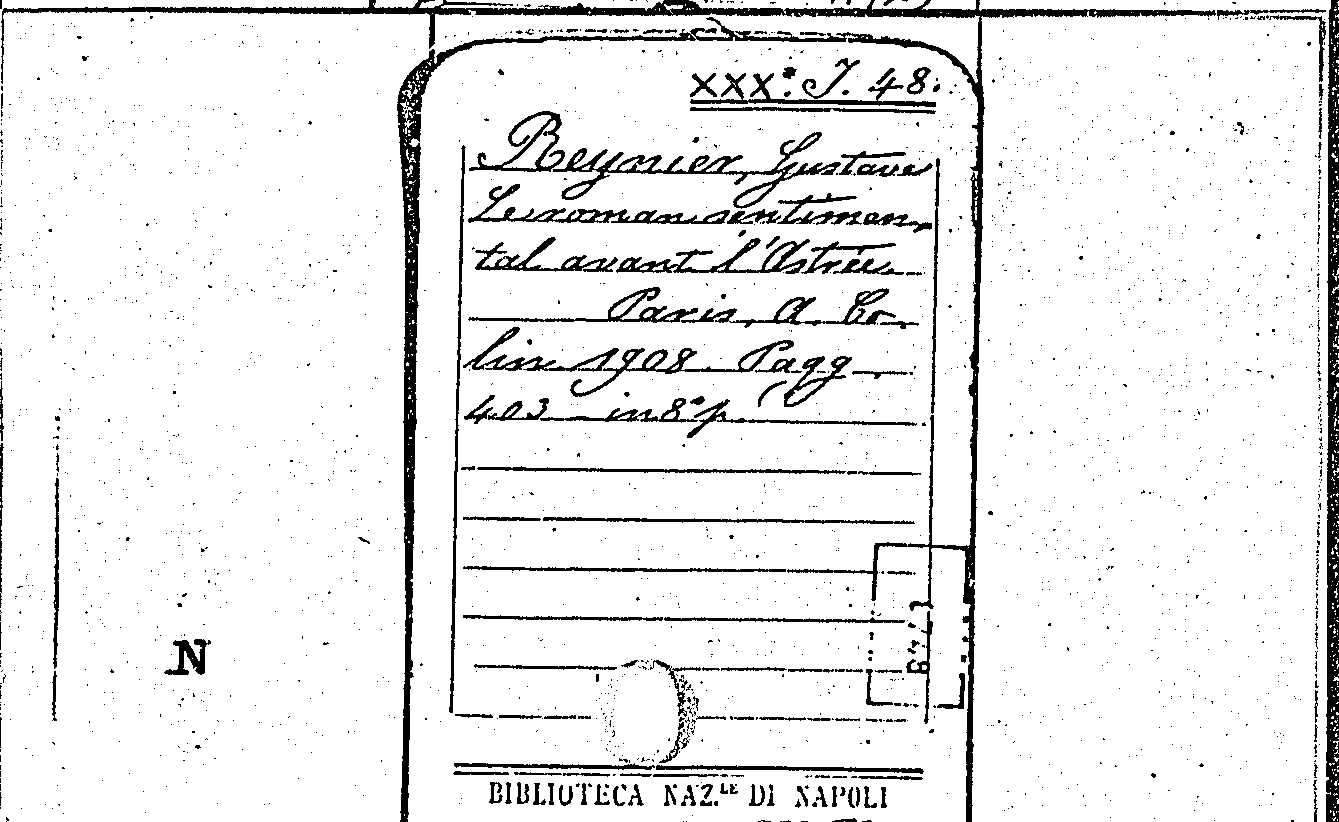 XXX*. J. 48.
Reynier, Gustave
Le roman sentimen,
tal avant l'Astrée.
Paris, A. Co,
lin 1908. Pagg.
403 in 8° p.
N
BIBLIOTECA NAZ.LE DI NAPOLI